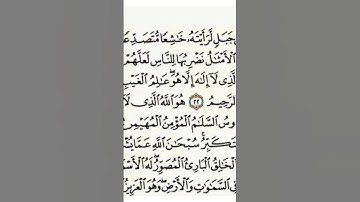 جَبَلٍ لَّرَأَيْتَهُۥ خَٰشِعًا مُّتَصَدِّعـ
ٱلْأَمْثَٰلُ نَضْرِبُهَا لِلنَّاسِ لَعَلَّهُمْ
لَّذِى لَآ إِلَٰهَ إِلَّا هُوَ ۖ عَٰلِمُ ٱلْغَيْبِ
لرَّحِيمُ ٢٢ هُوَ ٱللَّهُ ٱلَّذِى لَآ
وسُ ٱلسَّلَٰمُ ٱلْمُؤْمِنُ ٱلْمُهَيْمِنُ
تَكَبِّرُ ۚ سُبْحَٰنَ ٱللَّهِ عَمَّا يُشْـ
ٱلْخَٰلِقُ ٱلْبَارِئُ ٱلْمُصَوِّرُ ۖ لَهُ ٱلْأَسْمَـ
فِى ٱلسَّمَٰوَٰتِ وَٱلْأَرْضِ ۖ وَهُوَ ٱلْعَزِيزُ